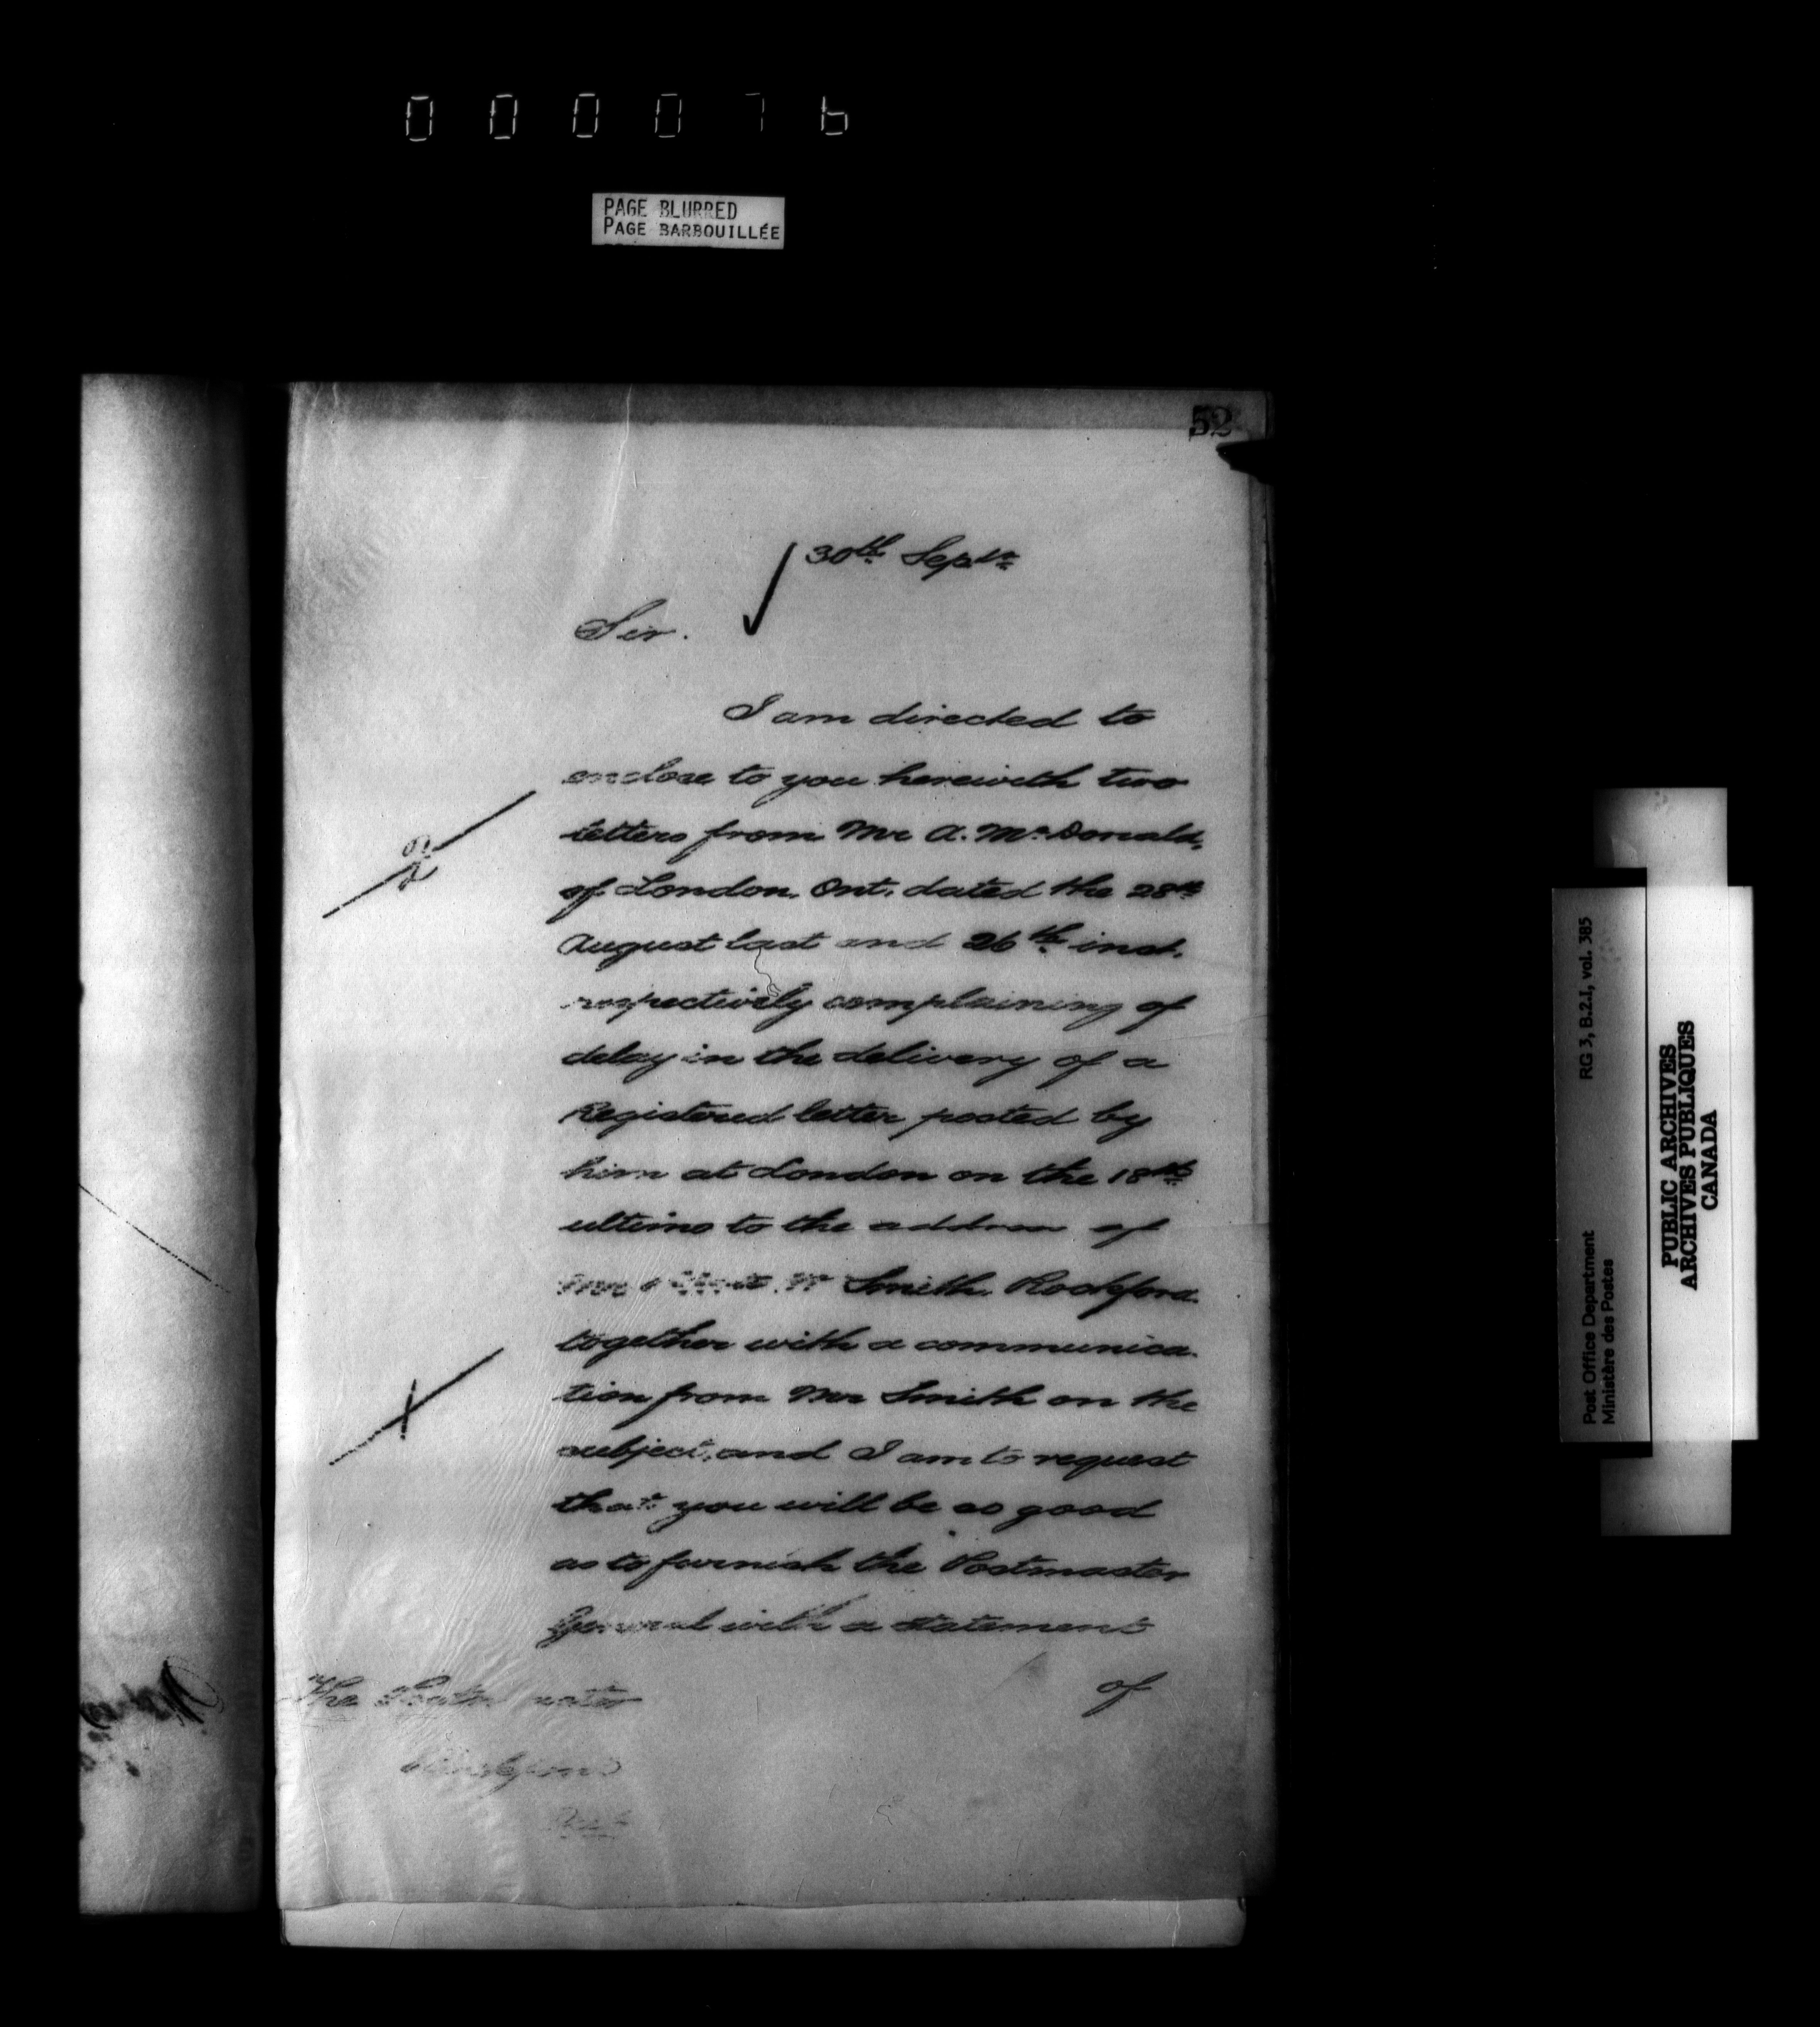 000076
PAGE BLURRED
PAGE BARBOUILLÉE
52
30th Septr
Sir.
I am directed to
enclose to you herewith two
letters from Mr A. McDonald,
of London. Ont. dated the 28th
August last and 26th inst.
respectively complaining of
delay in the delivery of a
Registered letter posted by
him at London on the 18th
ultimo to the address of
Smith. Rockford
together with a communica-
tion from Mr Smith on the
subject, and I am to request
that you will be so good
as to furnish the Postmaster
General with a statement
of
The
Rockford
Ont
Post Office Department
Ministère des Postes
RG 3, B.2.1, vol. 385
PUBLIC ARCHIVES
ARCHIVES PUBLIQUES
CANADA